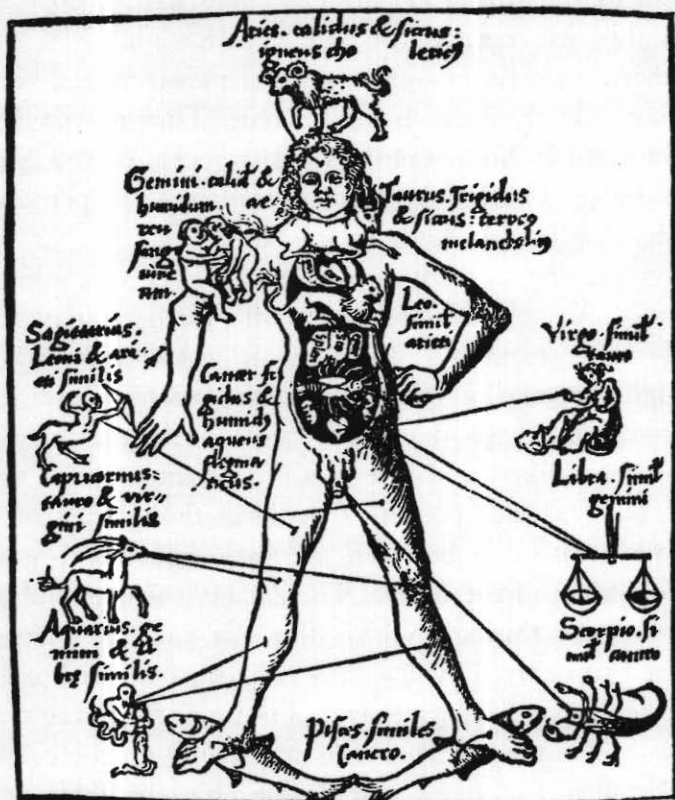 Aries. calidus & siccus:
igneus cho lericꝰ
Gemini. calid & ae
humidum
sangui
Taurus. frigidus
& siccus: terreꝰ
melancholicꝰ
Leo.
simil
arieti
Virgo. simil
tauro
Sagittarius.
Leoni & ari
eti similis
Cancer fri
gidus &
humidꝰ
aqueus
flegma
ticus.
Libra. simil
gemini
Capricornus.
tauro & vir-
gini similis
Scorpio. si
Aquarius. ge
mini & li
brę similis.
Pisces. similes
Cancro.